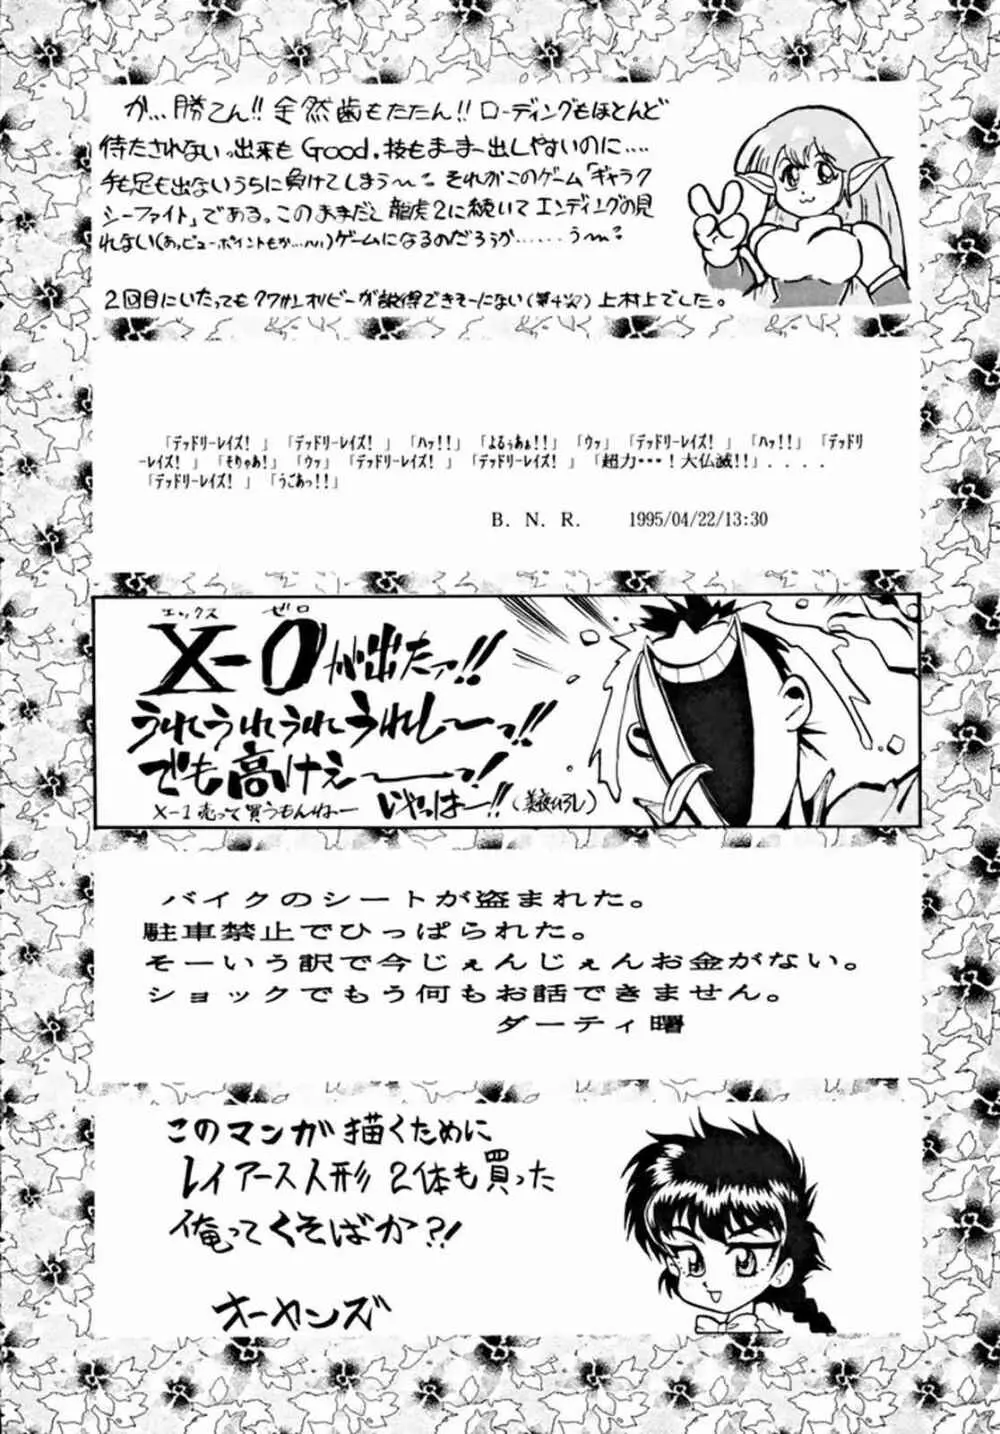 が…勝てん!! 全然歯もたたん!! ローディングもほとんど
待たされないっ出来もGood.技もまーまー出しやすいのに‥‥
手も足も出ないうちに負けてしまう〜 それがこのゲーム「ギャラク
シーファイト」である。このままだと龍虎2に続いてエンディングの見
れない(あっビューポイントもか…)ゲームになるのだろうか……う〜
2回目にいたってもクワサンオリビーが説得できそーにない(第4次)上村上でした。
「デッドリーレイズ! 」 「デッドリーレイズ! 」 「ハッ!!」 「よるぅあぁ!!」 「ウッ」 「デッドリーレイズ! 」 「ハッ!!」 「デッドリ
ーレイズ! 」 「そりゃあ!」 「ウッ」 「デッドリーレイズ! 」 「デッドリーレイズ! 」 「超力・・・!大仏滅!!」....
「デッドリーレイズ! 」 「うごあっ!!」
B. N. R. 1995/04/22/13:30
エックス ゼロ
X-0が出たァ!!
うれうれうれうれし〜っ!!
でも高けぇ〜っ!
X-1売って買うもんねー いやっほー!!
バイクのシートが盗まれた。
駐車禁止でひっぱられた。
そーいう訳で今じぇんじぇんお金がない。
ショックでもう何もお話できません。
ダーティ曙
このマンガ描くために
レイアース人形2体も買った
俺ってくそばか?!
オーカンズ